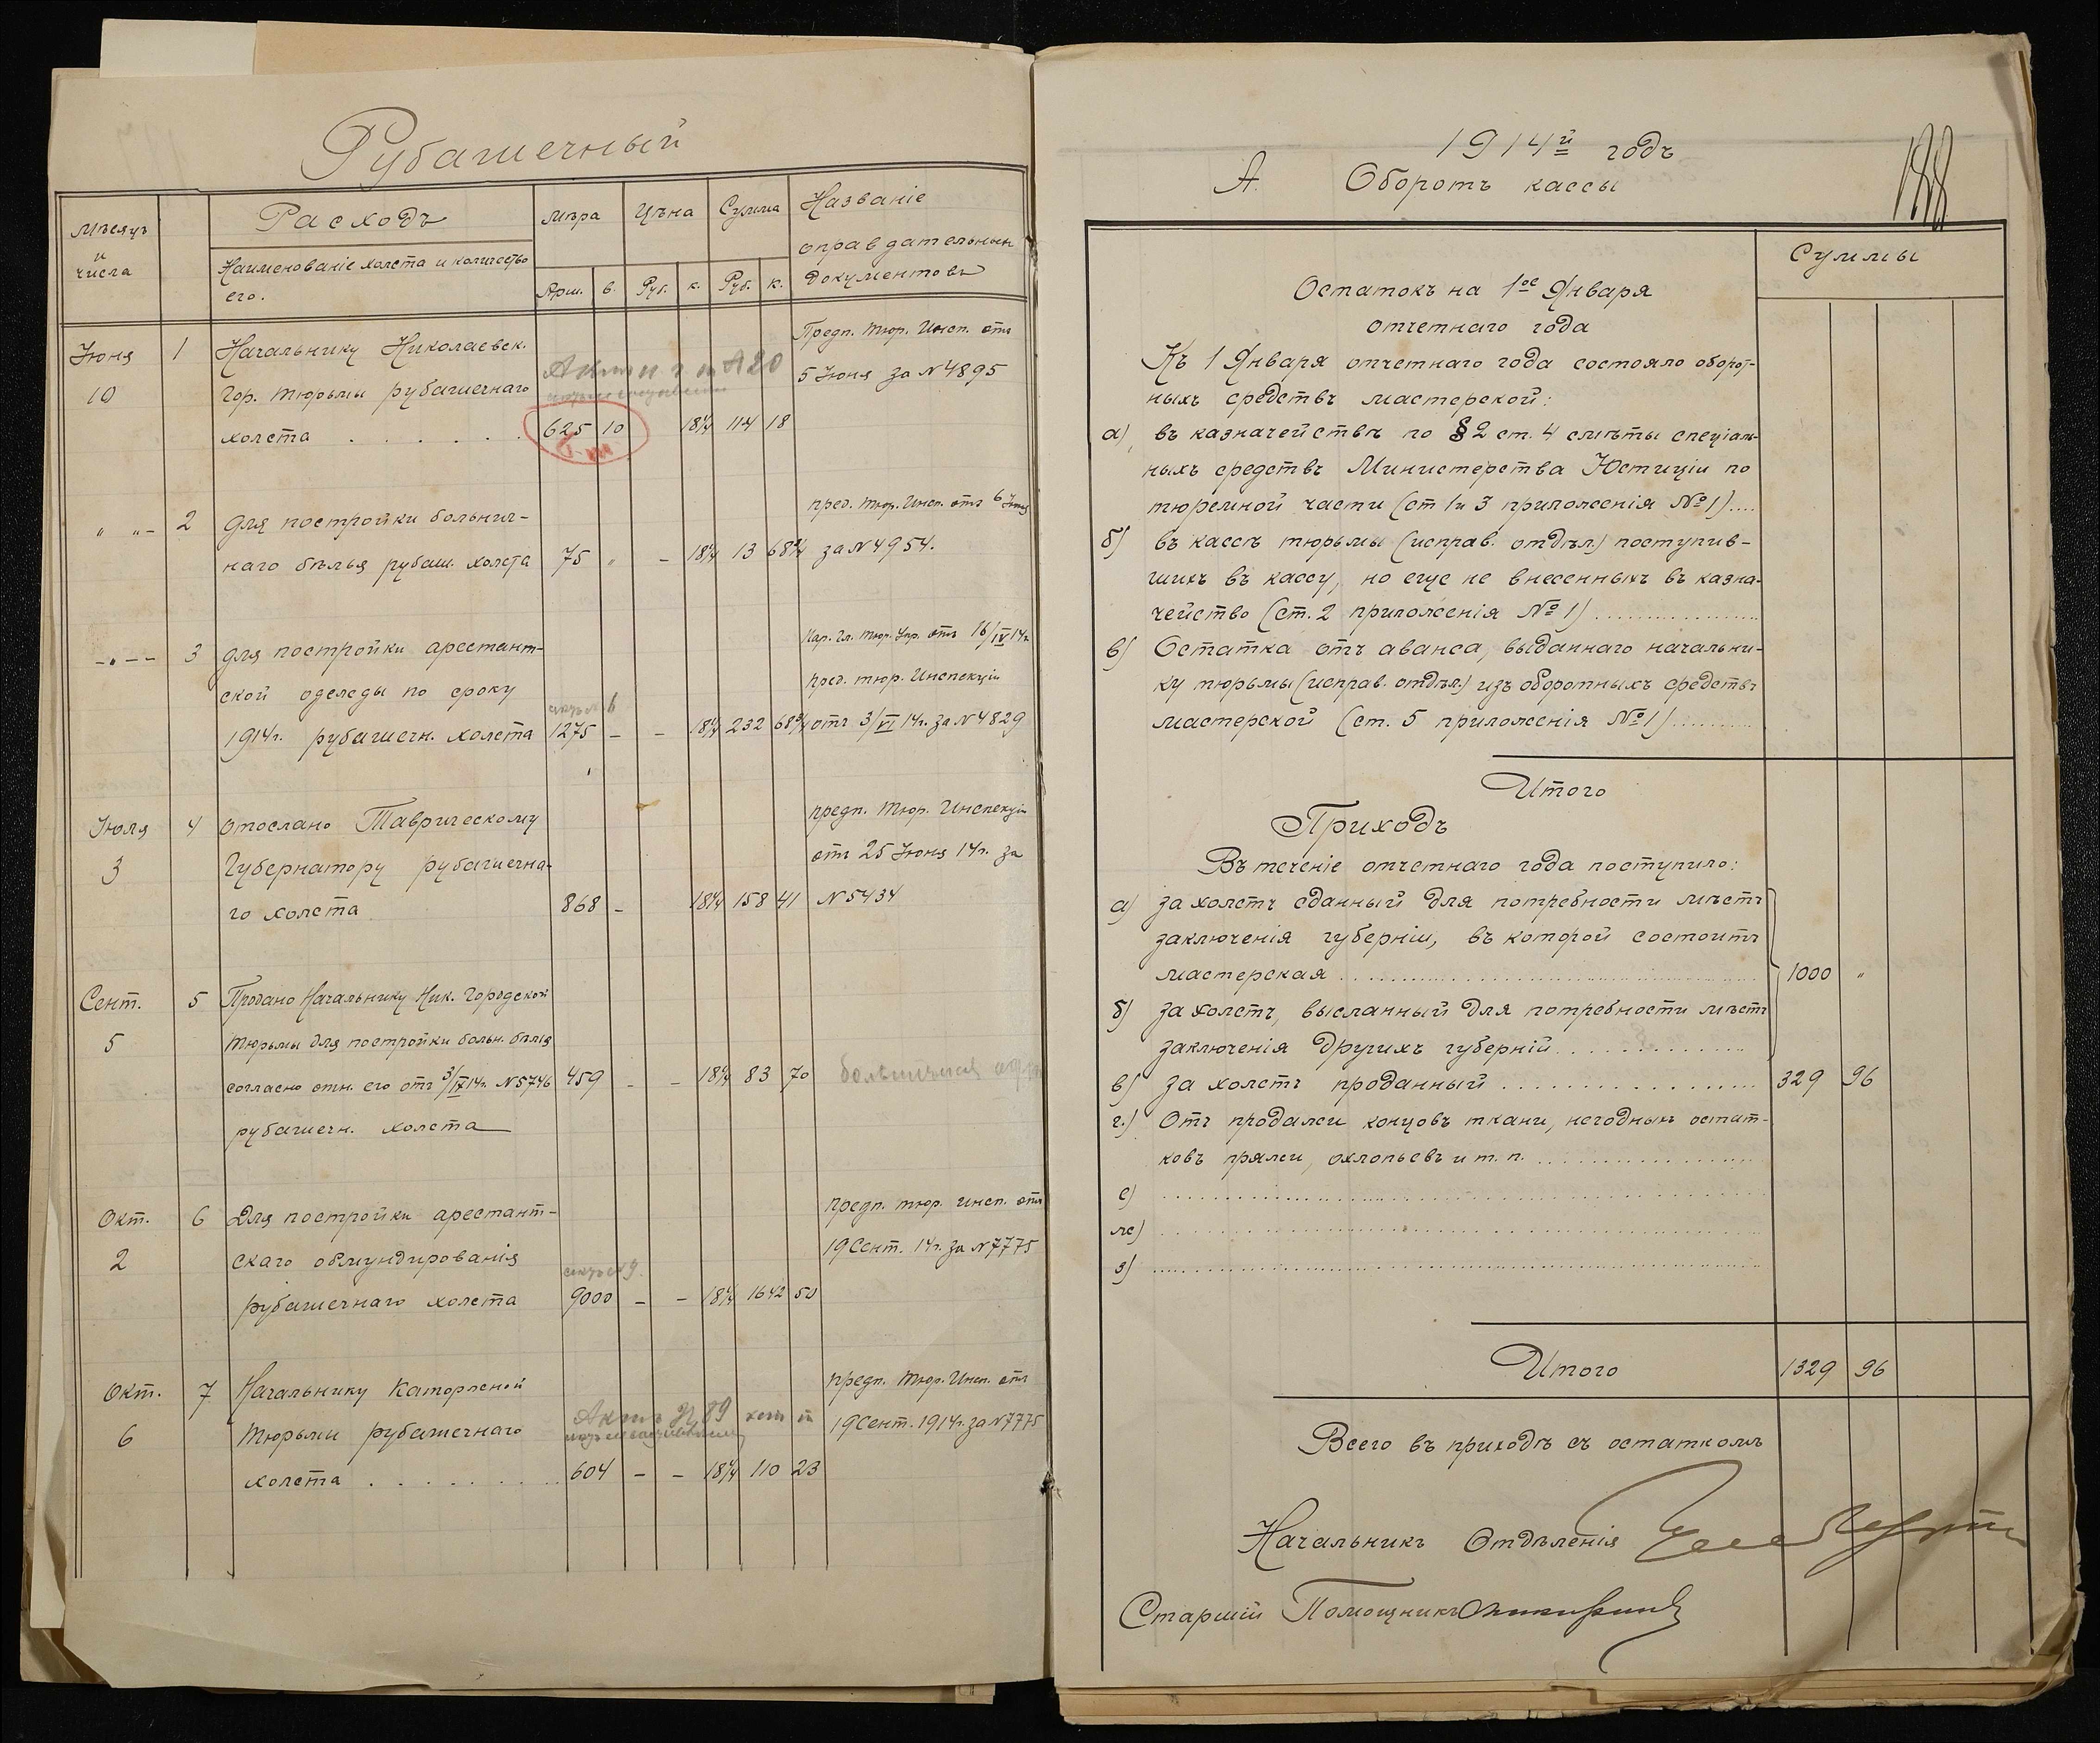 Рубашечный
Мѣсяцъ и числа
Расходъ
Наименованіе холста и количество его.
Мѣра
Цѣна
Сумма
Названіе оправдательныхъ документовъ
Арш. в. Руб. к. Руб. к.
Предп. тюр. Инсп. отъ
Іюня 1 Начальнику Николаевск.
5 Іюня за N 4895
10 Гор. тюрьмы рубашечнаго
холста . . . . . . 625 10 18¼ 114 18
пред. тюр. Инсп. отъ 6 Іюня
" " - 2 для постройки больнич-
наго бѣлья рубаш. холста 75 " - 18¼ 13 68¾ за N 4954.
Гл. тюр. Упр. отъ 16/IV 14г.
3 для постройки арестант-
пред. тюр. Инспекціи
ской одежды по сроку
1914г. рубашечн. холста 1275 - - 18¼ 232 68¾ отъ 3/VI 14г. за N 4829
предп. Тюр. Инспекціи
Іюля 4 Отослано Таврическому
отъ 25 Іюня 14г. за
3 Губернатору рубашечна-
го холста 868 - 18¼ 158 41 N 5434
Сент. 5 Продано Начальнику Ник. Городской
5 тюрьмы для постройки больн. бѣлья
согласно отн. его отъ 3/IX 14г. N 5746 459 - - 18¼ 83 70
рубашечн. холста
предп. тюр. инсп. отъ
Окт. 6 Для постройки арестант-
19 Сент. 14г. за N 7775
2 скаго обмундированія
рубашечнаго холста 9000 - - 18¼ 1642 50
предп. Тюр. Инсп. отъ
Окт. 7 Начальнику Каторжной
Актъ N 89
19 Сент. 1914г. за N 7775
6 тюрьмы рубашечнаго
холста . . . . . . . 604 - - 18¼ 110 23
1914й годъ
188
А. Оборотъ кассы
Суммы
Остатокъ на 1ое Января
отчетнаго года
Къ 1 Января отчетнаго года состояло оборот-
ныхъ средствъ мастерской:
а) въ казначействѣ по § 2 ст. 4 смѣты спеціаль-
ныхъ средствъ Министерства Юстиціи по
тюремной части (ст 1 и 3 приложенія № 1)....
б) въ кассѣ тюрьмы (исправ. отдѣл.) поступив-
шихъ въ кассу, но еще не внесенныхъ въ казна-
чейство (ст. 2 приложенія № 1) ..................
в) Остатка отъ аванса, выданнаго начальни-
ку тюрьмы (исправ. отдѣл.) изъ оборотныхъ средствъ
мастерской (ст. 5 приложенія № 1) ..........
Итого
Приходъ
Въ теченіе отчетнаго года поступило:
а) за холстъ сданный для потребности мѣстъ
заключенія губерніи, въ которой состоитъ
мастерская .................. 1000 "
б) за холстъ, высланный для потребности мѣстъ
заключенія другихъ губерній ..............
в) за холстъ проданный .................. 329 96
г.) Отъ продажи концовъ ткани, негодныхъ остат-
ковъ пряжи, охлопьевъ и т. п. ..................
е) ..................
ж) ..................
з) ..................
Итого 1329 96
Всего въ приходѣ съ остаткомъ
Начальникъ Отдѣленія
Старшій Помощникъ